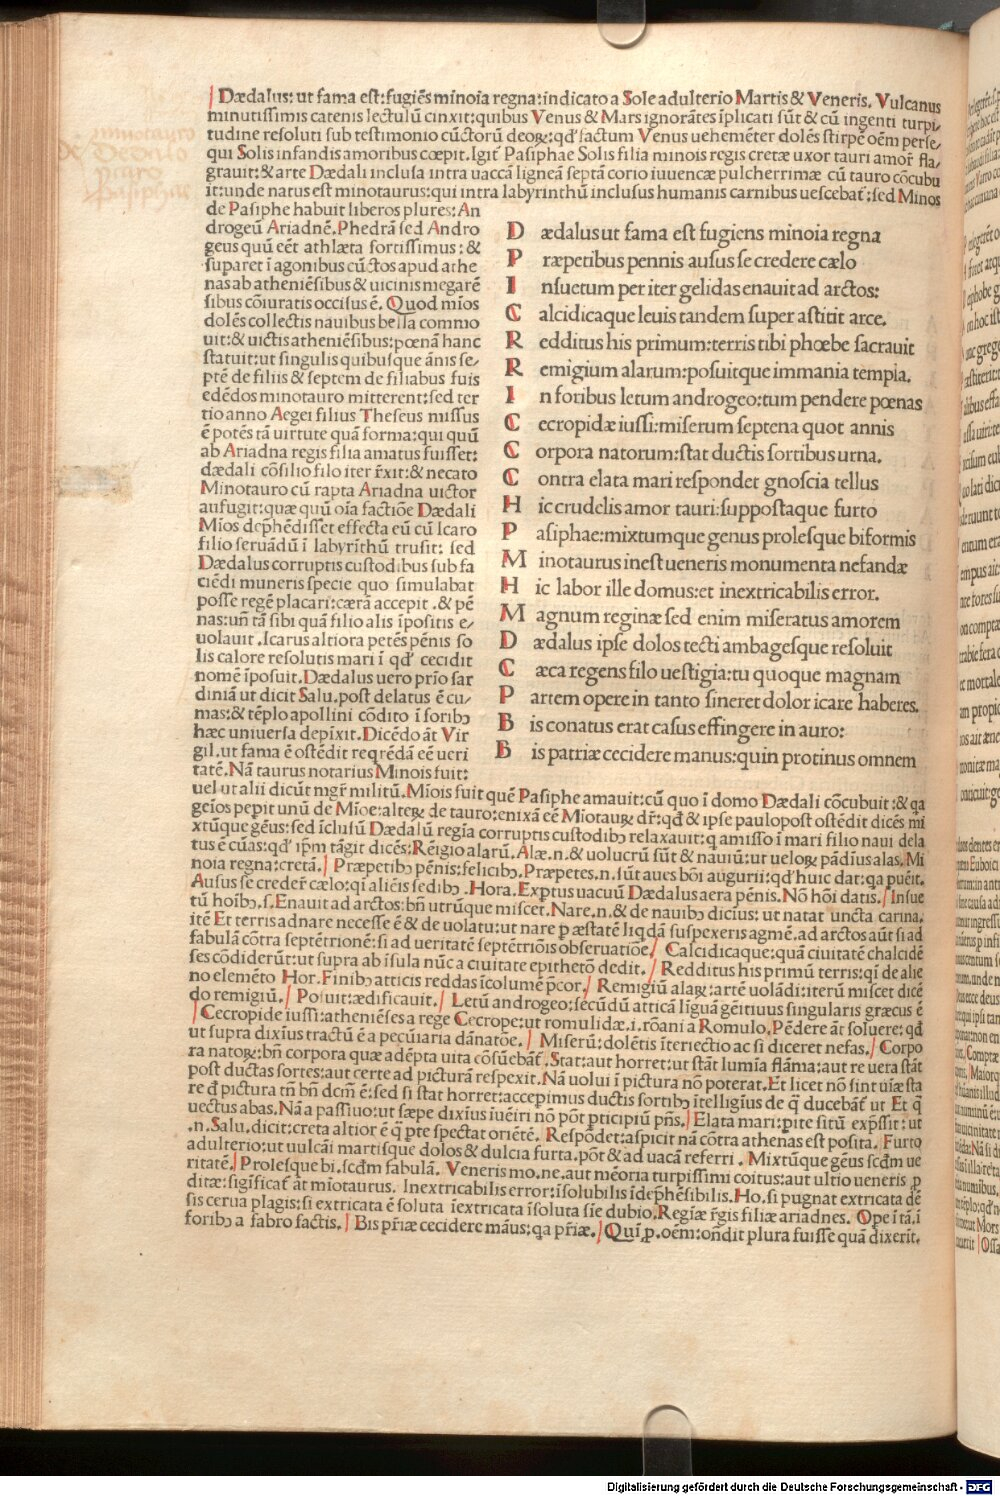 minotauro
De Dedalo
Icaro
Pasiphae
Dædalus: ut fama est: fugiẽs minoia regna: indicato a Sole adulterio Martis & Veneris. Vulcanus
minutissimis catenis lectulũ cinxit: quibus Venus & Mars ignorãtes ĩplicati sũt & cũ ingenti turpi/
tudine resoluti sub testimonio cũctorũ deoꝝ: qđ factum Venus uehemẽter dolẽs stirpẽ oẽm perse/
qui Solis infandis amoribus cœpit. Igit᷑ Pasiphae Solis filia minois regis cretæ uxor tauri amor̃ fla/
grauit: & arte Dædali inclusa intra uaccã ligneã septã corio iuuencæ pulcherrimæ cũ tauro cõcubu
it: unde natus est minotaurus: qui intra labyrinthũ inclusus humanis carnibus uescebat᷑: sed Minos
de Pasiphe habuit liberos plures: An
drogeũ Ariadnẽ. Phedrã sed Andro
geus quũ eẽt athlæta fortissimus: &
supãret ĩ agonibus cũctos apud athe
nas ab atheniẽsibus & uicinis megarẽ
sibus cõiuratis occisus ẽ. Quod mĩos
dolẽs collectis nauibus bella commo
uit: & uictis atheniẽsibus: pœnã hanc
statuit: ut singulis quibusque ãnis se/
ptẽ de filiis & septem de filiabus suis
edẽdos minotauro mitterent: sed ter
tio anno Aegei filius Theseus missus
ẽ potẽs tã uirtute quã forma: qui quũ
ab Ariadna regis filia amatus fuisset:
dædali cõsilio filo iter r̃xit: & necato
Minotauro cũ rapta Ariadna uictor
aufugit: quæ quũ oĩa factiõe Dædali
Mĩos dep̃hẽdisset effecta eũ cũ Icaro
filio seruãdũ ĩ labyrĩthũ trusit: sed
Dædalus corruptis custodibus sub fa
ciẽdi muneris specie quo simulabat
posse regẽ placari: cærã accepit. & pẽ
nas: uñ tã sibi quã filio alis ĩpositis e/
uolauit. Icarus altiora petẽs pẽnis so
lis calore resolutis mari ĩ qđ cecidit
nomẽ ĩposuit. Dædalus uero pr̃io sar
diniã ut dicit Salu. post delatus ẽ cu/
mas: & tẽplo apollini cõdito ĩ foribꝫ
hæc uniuersa depĩxit. Dicẽdo ãt Vir
gil. ut fama ẽ ostẽdit reqrẽdã eẽ ueri
tatẽ. Nã taurus notarius Minois fuit:
D ædalus ut fama est fugiens minoia regna
P ræpetibus pennis ausus se credere cælo
I nsuetum per iter gelidas enauit ad arctos:
C alcidicaque leuis tandem super astitit arce.
R edditus his primum: terris tibi phœbe sacrauit
R emigium alarum: posuitque immania templa.
I n foribus letum androgeo: tum pendere pœnas
C ecropidæ iussi: miserum septena quot annis
C orpora natorum: stat ductis sortibus urna.
C ontra elata mari respondet gnoscia tellus
H ic crudelis amor tauri: suppostaque furto
P asiphae: mixtumque genus prolesque biformis
M inotaurus inest ueneris monumenta nefandæ
H ic labor ille domus: et inextricabilis error.
M agnum reginæ sed enim miseratus amorem
D ædalus ipse dolos tecti ambagesque resoluit
C æca regens filo uestigia: tu quoque magnam
P artem opere in tanto sineret dolor icare haberes.
B is conatus erat casus effingere in auro:
B is patriæ cecidere manus: quin protinus omnem
uel ut alii dicũt mgr̃ militũ. Mĩois fuit quẽ Pasiphe amauit: cũ quo ĩ domo Dædali cõcubuit: & qa
geĩos pepit unũ de Mĩoe: alteꝝ de tauro: enixã eẽ Miotauꝝ dr̃: qđ & ipse paulopost ostẽdit dicẽs mi
xtũque gẽus: sed ĩclusũ Dædalũ regĩa corruptis custodibꝫ relaxauit: q amisso ĩ mari filio naui dela
tus ẽ cũas: qđ ip̃m tãgit dicẽs: Rẽigio alarũ. Alæ. n. & uolucrũ sũt & nauiũ: ut ueloꝝ pãdĩus alas. Mi
noia regna: cretã. Præpetibꝫ pẽnis: felicibꝫ. Præpetes. n. sũt aues bõi augurii: qđ huic dat: qa puẽit.
Ausus se creder̃ cælo: qi aliẽis sedibꝫ. Hora. Exptus uacuũ Dædalus aera pẽnis. Nõ hõi datis. Insue
tũ hoĩbꝫ. s. Enauit ad arctos: bñ utrũque miscet. Nare. n. & de nauibꝫ dicius: ut natat uncta carina.
itẽ Et terris adnare necesse ẽ & de uolatu: ut nare p æstatẽ liqdã suspexeris agmẽ. ad arctos aũt si ad
fabulã cõtra septẽtrionẽ: si ad ueritatẽ septẽtriõis obseruatiõe. Calcidicaque: quã ciuitatẽ chalcidẽ
ses cõdiderũt: ut supra ab ĩsula nũc a ciuitate epithetõ dedit. Redditus his primũ terris: qi de alie
no elemẽto Hor. Finibꝫ atticis reddas ĩcolumẽ p̃cor. Remigiũ alaꝝ: artẽ uolãdi: iterũ miscet dicẽ
do remigiũ. Posuit: ædificauit. Letũ androgeo: secũdũ atticã lĩguã gẽitiuus singularis græcus ẽ
Cecropide iussi: atheniẽses a rege Cecrope: ut romulidæ. i. rõani a Romulo. Pẽdere ãt soluere: qđ
ut supra dixĩus tractũ ẽ a pecũiaria dãnatõe. Miserũ: dolẽtis ĩteriectio ac si diceret nefas. Corpo
ra natoꝝ: bñ corpora quæ adẽpta uita cõsũebãt᷑. Stat: aut horret: ut stãt lumĩa flãma: aut re uera stãt
post ductas sortes: aut certe ad picturã respexit. Nã uolui ĩ pictura nõ poterat. Et licet nõ sint uiæ sta
re q̃ pictura tñ bñ dcm̃ ẽ: sed si stat horret: accepimus ductis sortibꝫ ĩtelligĩus de q̃ ducebãt᷑ ut Et q̃
uectus abas. Nã a passiuo: ut sæpe dixĩus iuẽiri nõ põt pticipiũ pñs. Elata mari: pite sitũ exp̃ssit: ut
.n. Salu. dicit: creta altior ẽ q̃ pte spectat oriẽtẽ. Respõdet: aspicit nã cõtra athenas est posita. Furto
adulterio: ut uulcãi martisque dolos & dulcia furta. põt & ad uacã referri. Mixtũque gẽus scđm ue
ritatẽ. Prolesque bi. scđm fabulã. Veneris mo. ne. aut mẽoria turpissimi coitus: aut ultio ueneris p
ditæ: sĩgificat᷑ ãt miotaurus. Inextricabilis error: ĩsolubilis ĩdep̃hẽsibilis. Ho. si pugnat extricata dẽ
sis cerua plagis: si extricata ẽ soluta ĩextricata ĩsoluta sĩe dubio. Regiæ r̃gis filiæ ariadnes. Ope ĩ tã. ĩ
foribꝫ a fabro factis. Bis pr̃iæ cecidere mãus: qa pr̃iæ. Quĩ ꝓ. oẽm: oñdit plura fuisse quã dixerit.
Digitalisierung gefördert durch die Deutsche Forschungsgemeinschaft - DFG